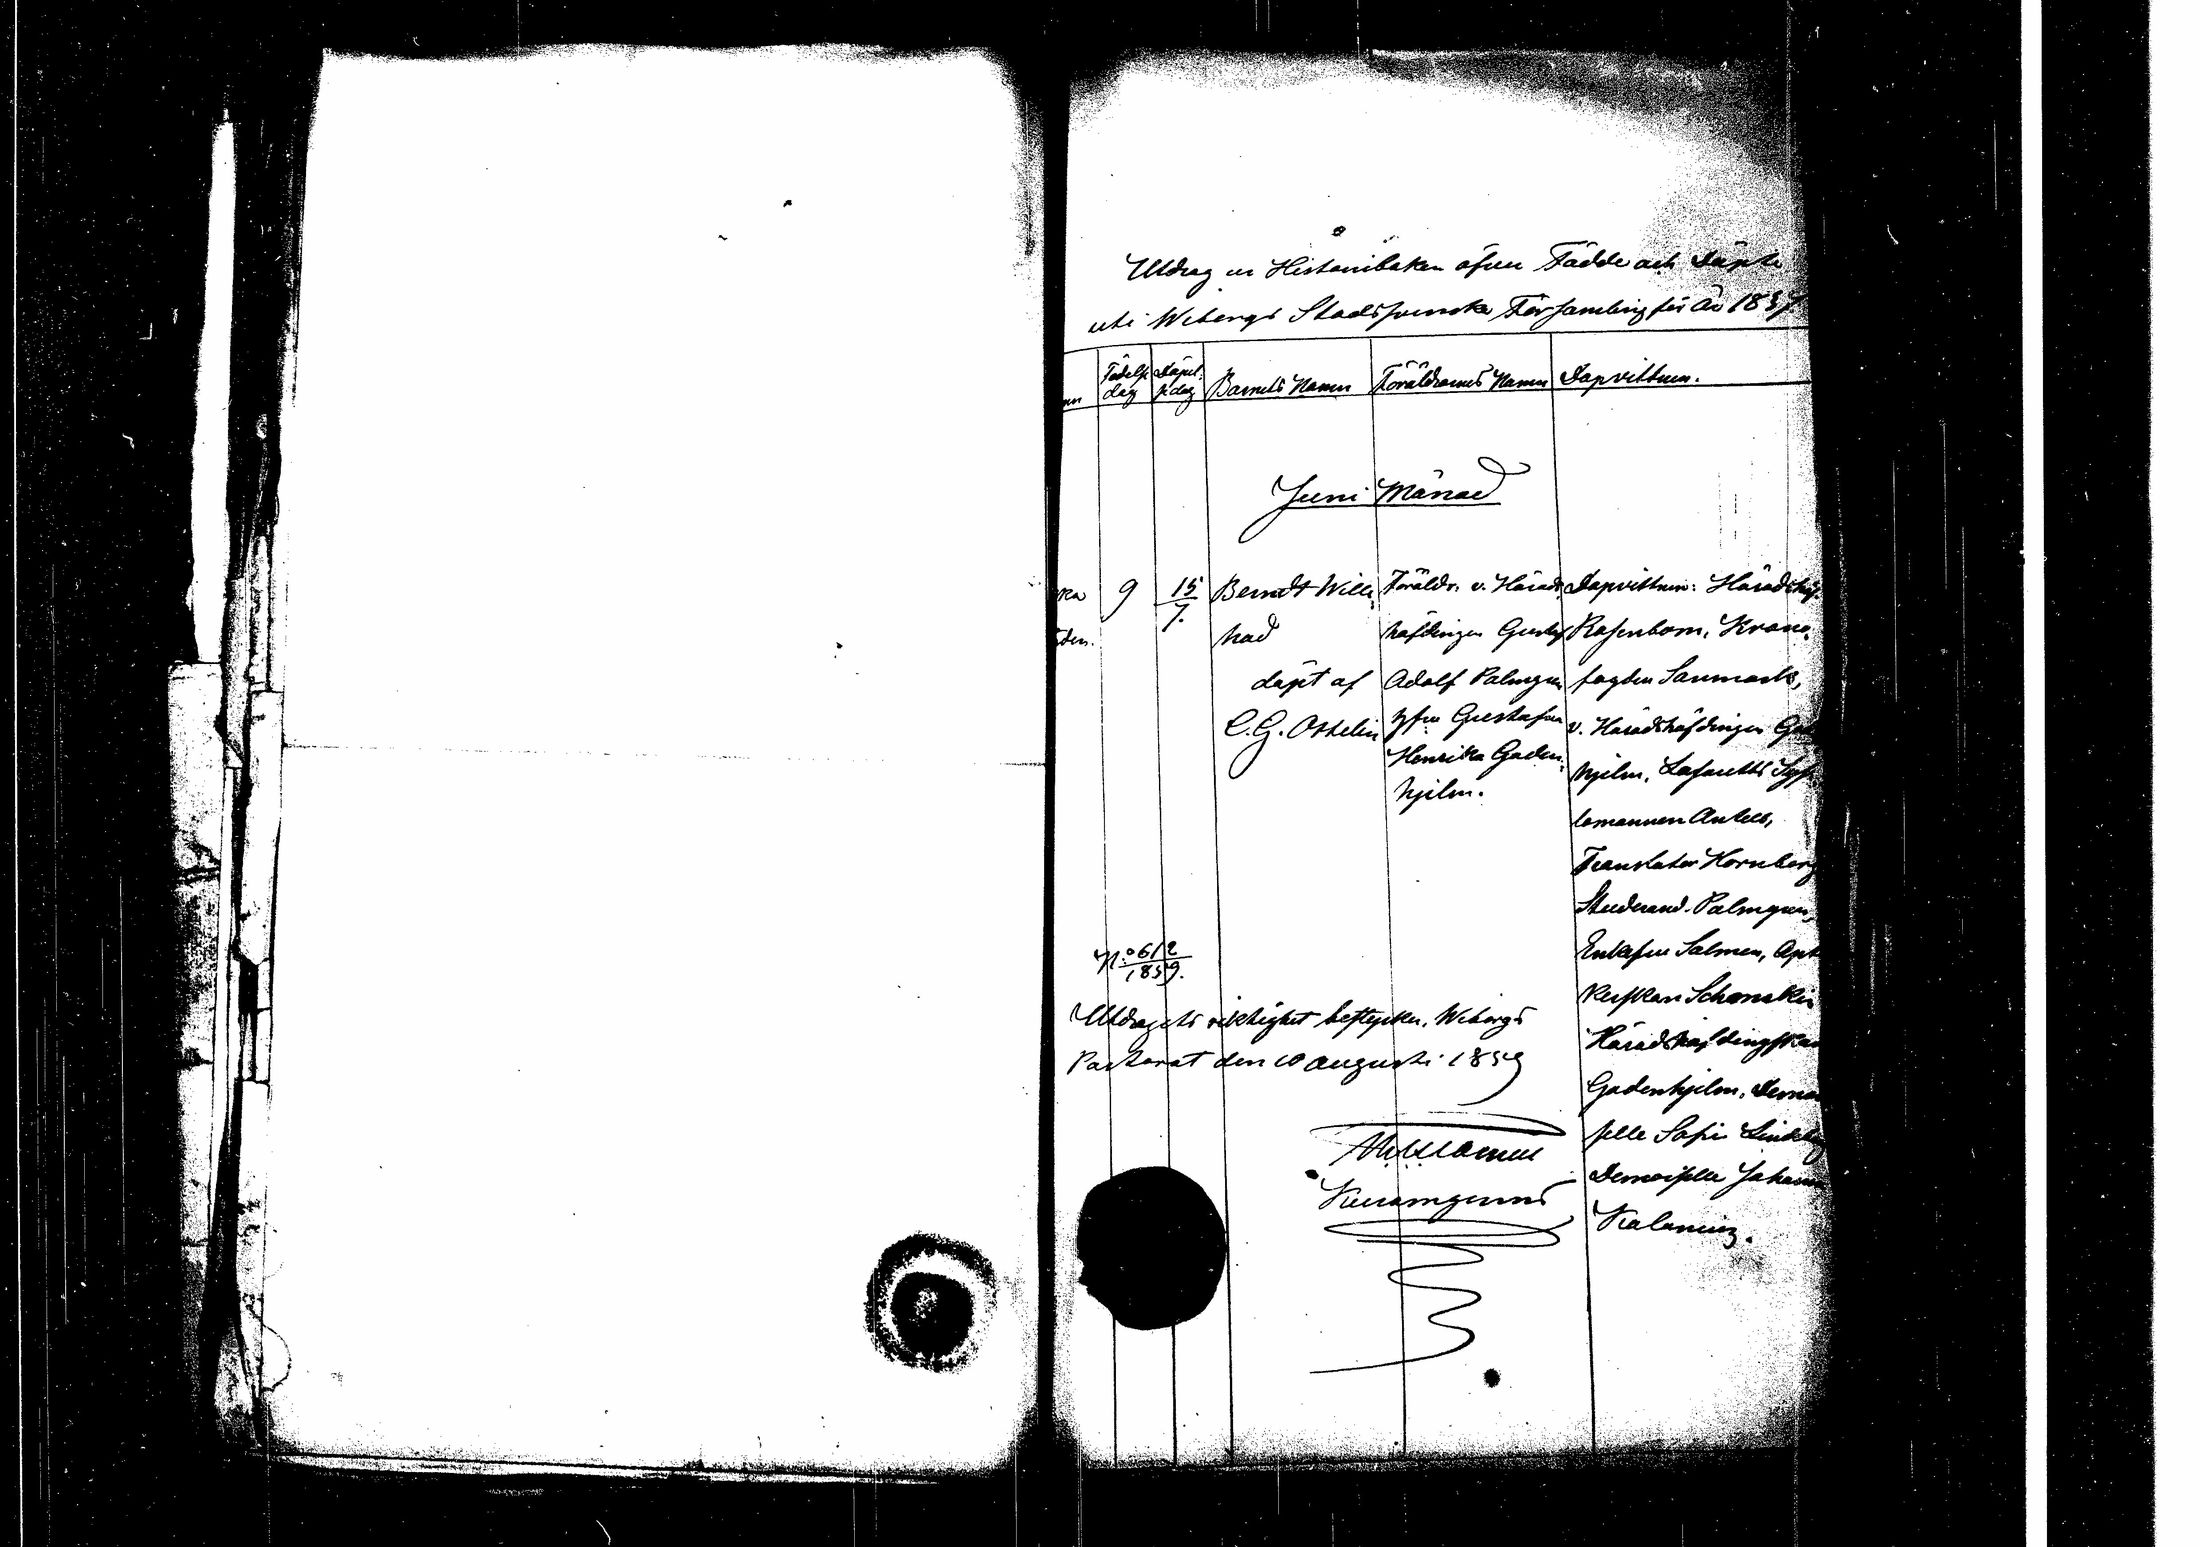 Utdrag ur Historiiboken öfver Födde och Döpte
uti Wiborgs Stads svenska Församling för år 1837.
Födelse dag
Döpelse dag
Barnets Namn
Föräldrarnes Namn
Dopvittnen.
Juni Månad
ka
den.
9
15/7.
Berndt Will=
had
döpt af
C. G. Ottelin
Föräldr. v. Härads=
höfdingen Gustaf
Adolf Palmgren
hfru Gustafva
Henrika Gaden=
hjelm.
Dopvittnen: Häradshöf.
Rosenbom, Krono=
fogden Sanmark,
v. Häradshöfdingen Gad
hjelm, Lasaretts Syss
lomannen Antell,
Translator Hornborg
Studerand. Palmgren,
Enkefru Salmen, Apt
Häradshöfdingskan
Gadenhjelm, Demoi
selle Sofie Lindeb
Demoiselle Johann
N:o 612
1859.
Utdragets riktighet bestyrker, Wiborgs
Pastorat den 10 Augusti 1859